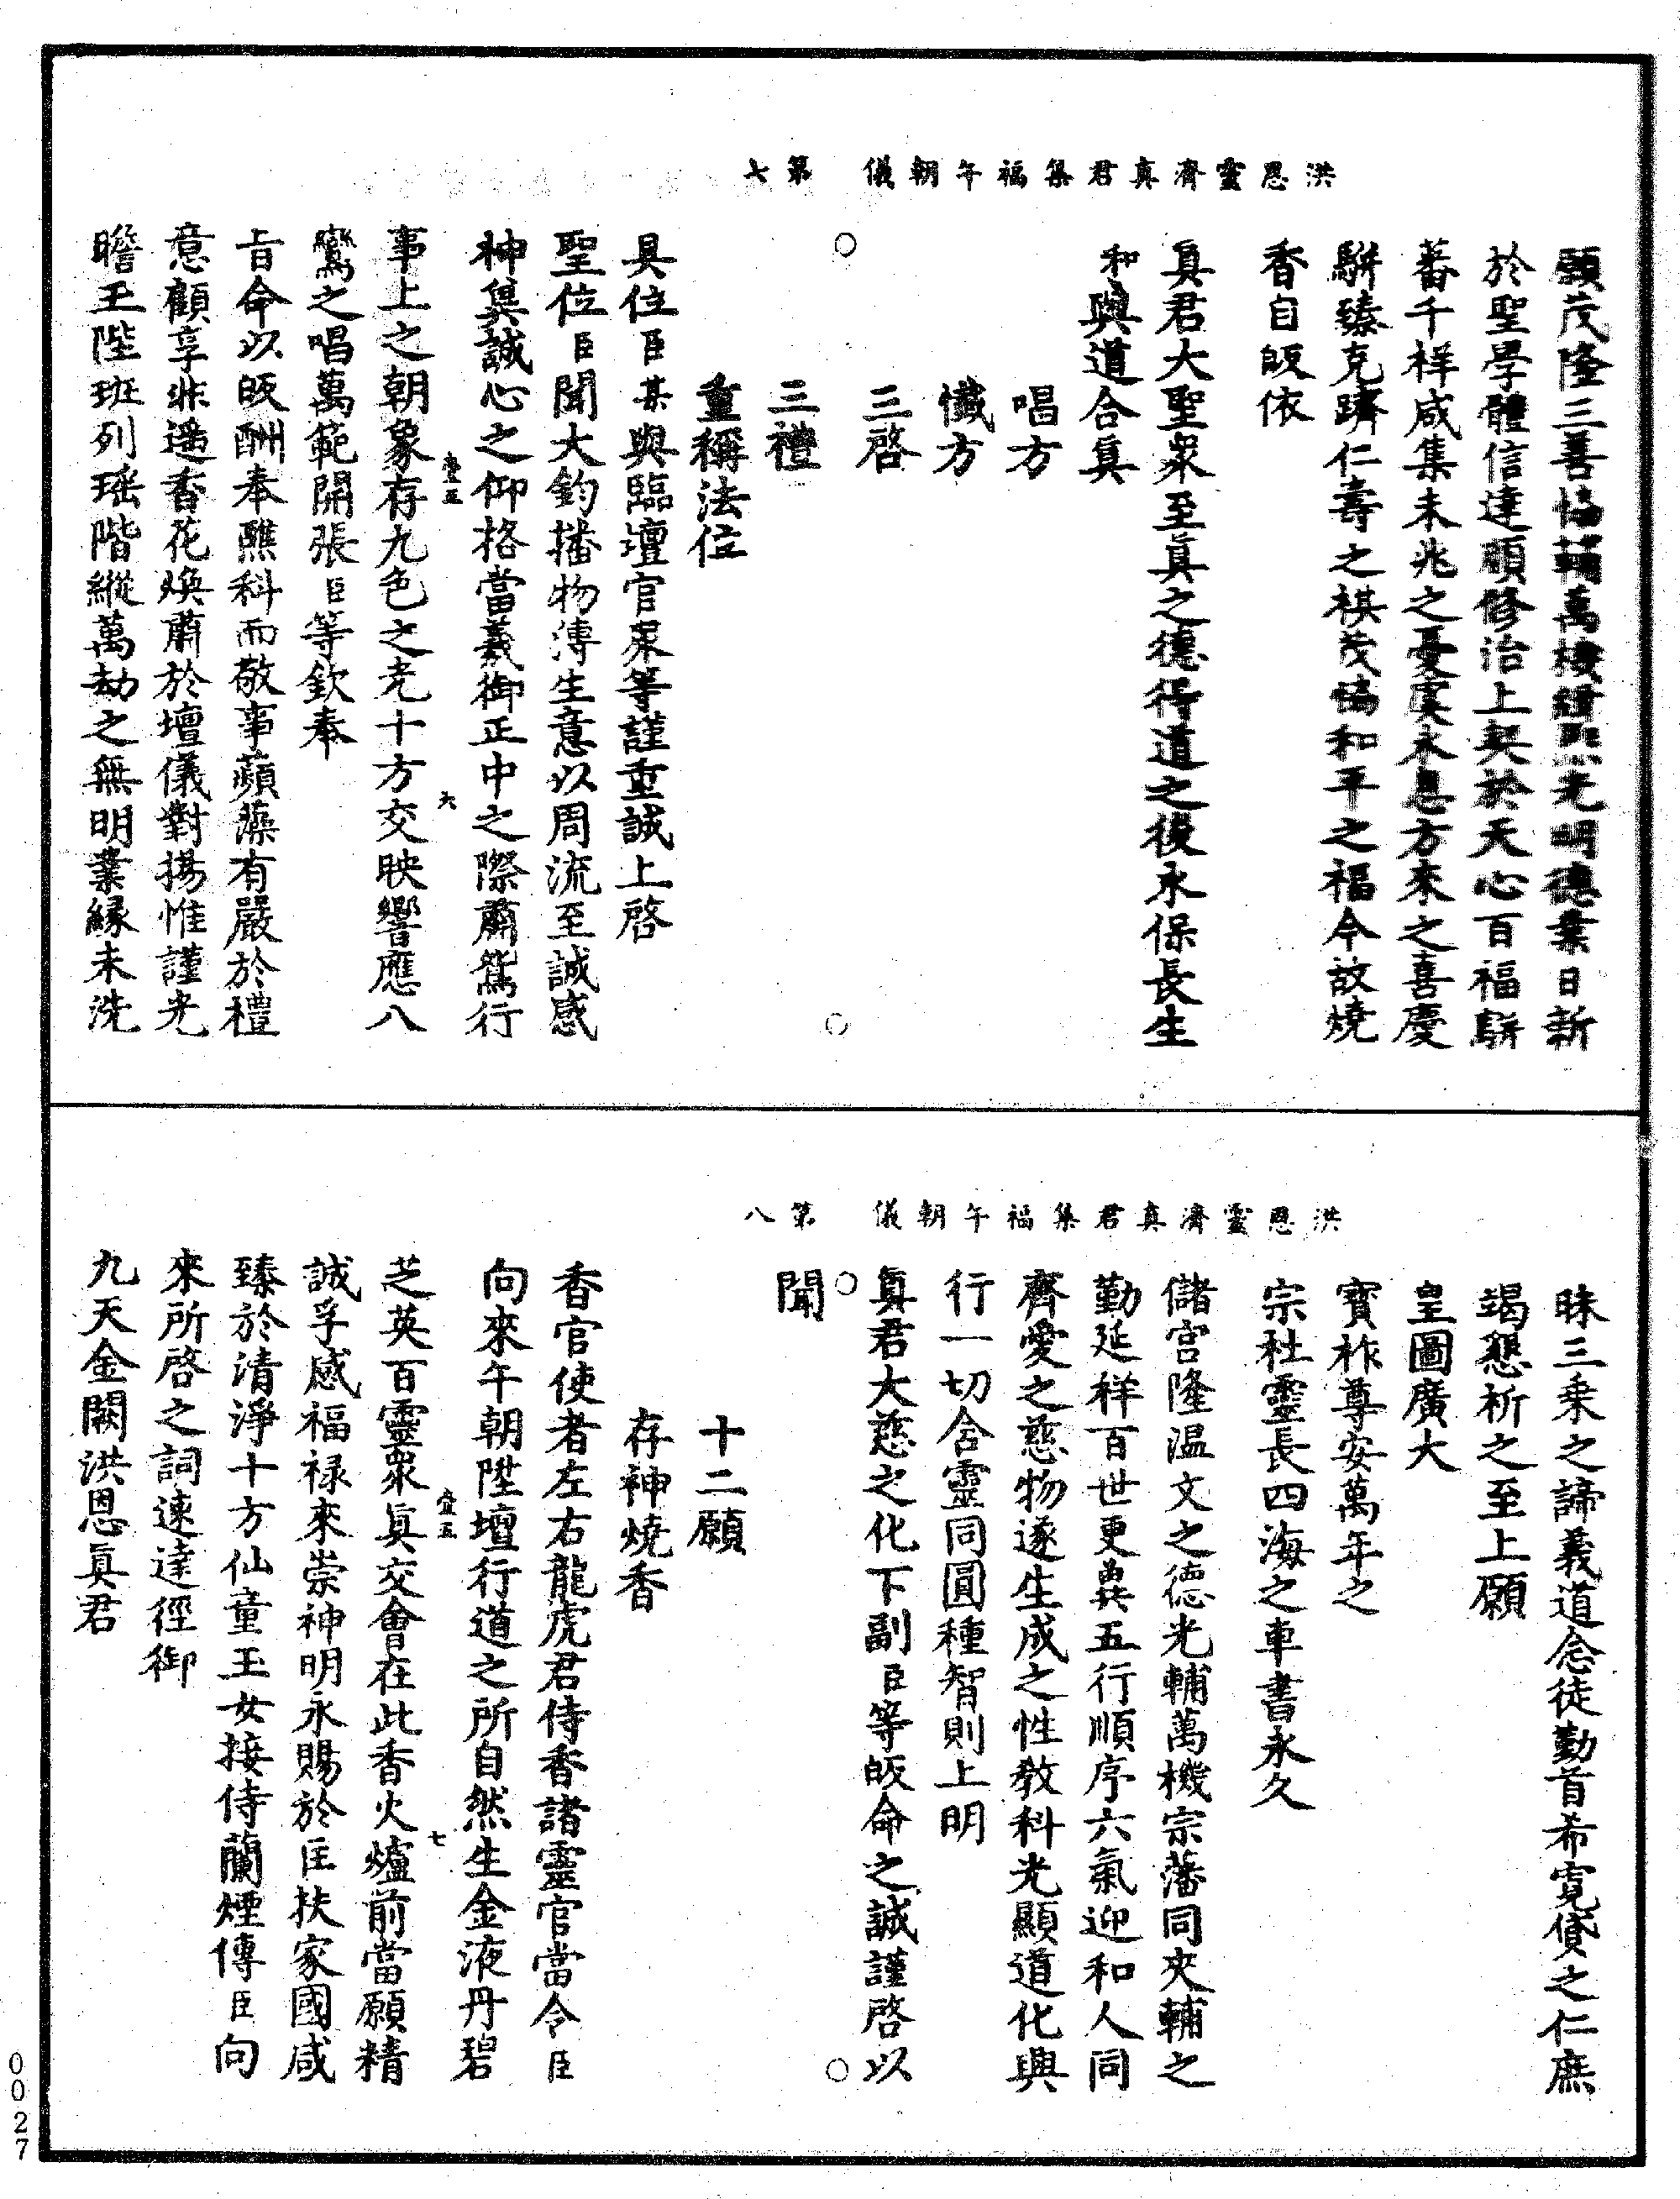 洪恩靈濟真君集福午朝儀　第七
願茂隆三善恊輔萬機緝熙光明德業日新
於聖學體信達順修治上契於天心百福駢
蕃千祥咸集未兆之憂虞永息方來之喜慶
駢臻克躋仁壽之祺茂恊和平之福今故燒
香自皈依
眞君大聖衆至眞之德得道之後永保長生
和與道合眞
唱方
懺方
三啓
三禮
重稱法位
具位臣某與臨壇官衆等謹重誠上啓
聖位臣聞大鈞播物溥生意以周流至誠感
神與誠心之仰格當羲御正中之際肅鵷行
事上之朝象存九色之光十方交映響應八
鸞之唱萬範開張臣等欽奉
旨命以皈酬奉醮科而敬事蘋藻有嚴於禮
意顧享非遥香花煥肅於壇儀對揚惟謹光
瞻玉陛班列瑶階縱萬劫之無明業緣未洗
壹五
六
洪恩靈濟真君集福午朝儀　第八
昧三乘之諦義道念徒勤首希寛貸之仁庶
竭懇祈之至上願
皇圖廣大
寳祚尊安萬年之
宗社靈長四海之車書永久
儲宫隆温文之德光輔萬機宗藩同夾輔之
勤延祥百世更兾五行順序六氣迎和人同
齊愛之慈物遂生成之性教科光顯道化興
行一切含靈同圓種智則上明
眞君大慈之化下副臣等皈命之誠謹啓以
聞
十二願
存神燒香
香官使者左右龍虎君侍香諸靈官當令臣
向來午朝陞壇行道之所自然生金液丹碧
芝英百靈衆眞交會在此香火爐前當願精
誠孚感福禄來崇神明永賜於匡扶家國咸
臻於清淨十方仙童玉女接侍蘭煙傳臣向
來所啓之詞速達徑御
九天金闕洪恩眞君
壹五
七
0027